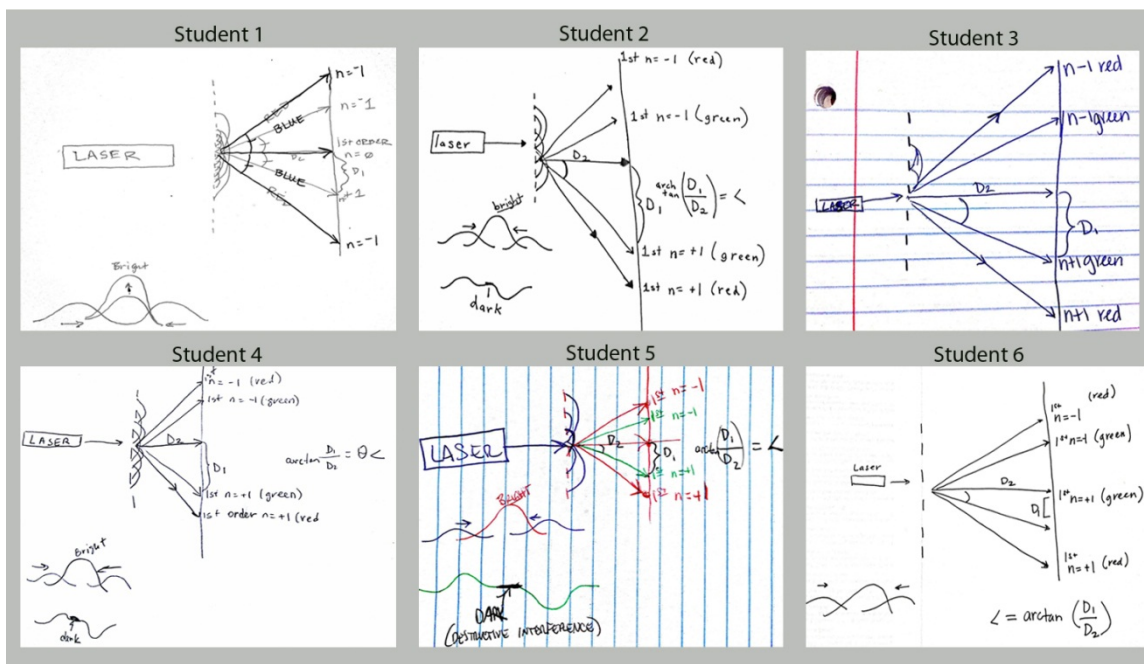 Student 1
n=-1
n=-1
RED
BLUE
LASER
1st ORDER
n=ø
D₂
D₁
BLUE
RED
n=+1
n=-1
Bright
Student 2
1st n=-1 (red)
1st n=-1 (green)
laser
D₂
arch
tan (D₁/D₂) = <
D₁
bright
1st n=+1 (green)
1st n=+1 (red)
dark
Student 3
n-1 red
n-1green
LASER
D2
D₁
n+1green
n+1 red
Student 4
1st
n=-1 (red)
1st n=-1 (green)
LASER
D₂
D₁
arctan D₁/D₂ = θ<
1st n=+1 (green)
1st order n=+1 (red
Bright
dark
Student 5
1st n=-1
1st n=-1
LASER
D₂
D₁
arctan(D₁/D₂) = <
1st n=+1
1st n=+1
BRIGHT
DARK
(DESTRUCTIVE INTERFERENCE)
Student 6
(red)
1st
n=-1
1st n=-1 (green)
Laser
D₂
1st n=+1 (green)
D₁
1st
n=+1 (red)
< = arctan (D₁/D₂)